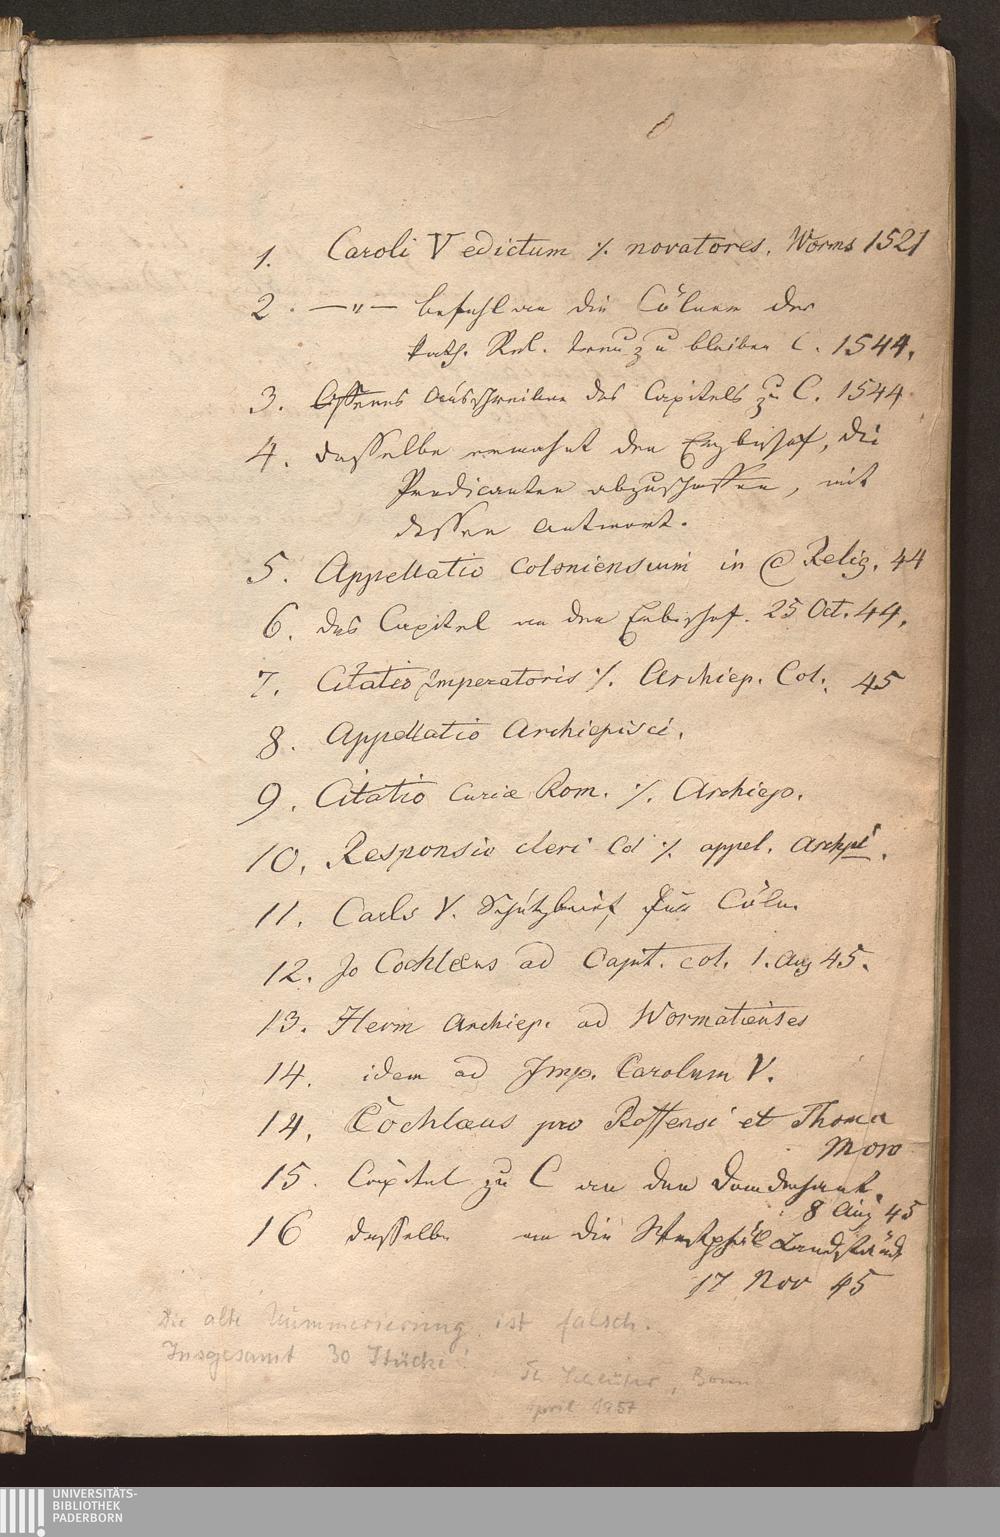 1. Caroli V edictum ·/. novatores. Worms 1521
2. —"— befehl an die Cölner der
kath. Rel. treu zu bleiben C. 1544.
3. Offenes Ausschreiben des Capitels zu C. 1544
4. dasselbe ermahnt den Erzbischof, die
Predicanten abzuschaffen, mit
dessen Antwort.
5. Appellatio Coloniensium in C Relig. 44
6. das Capitel an den Erzbischof. 25 Oct. 44.
7. Citatio Imperatoris ·/. Archiep. Col. 45
8. Appellatio Archiepisci.
9. Citatio Curiæ Rom. ·/. Archiep.
10. Responsio cleri Col ·/. appel. Archpi.
11. Carls V. Schutzbrief für Cöln.
12. Jo Cochlæus ad Capit. col. 1. Aug 45.
13. Herm Archiep. ad Wormatienses
14. idem ad Imp. Carolum V.
14. Cochlaeus pro Roffensi et Thoma
Moro
15. Capitel zu C an den Domdechant.
8 Aug 45
16 dasselbe an die Westphäl Landständ
17 Nov 45
Die alte Nummerierung ist falsch.
Insgesamt 30 Stücke!
Schlüter, Bonn
April 1957
UNIVERSITÄTS-
BIBLIOTHEK
PADERBORN